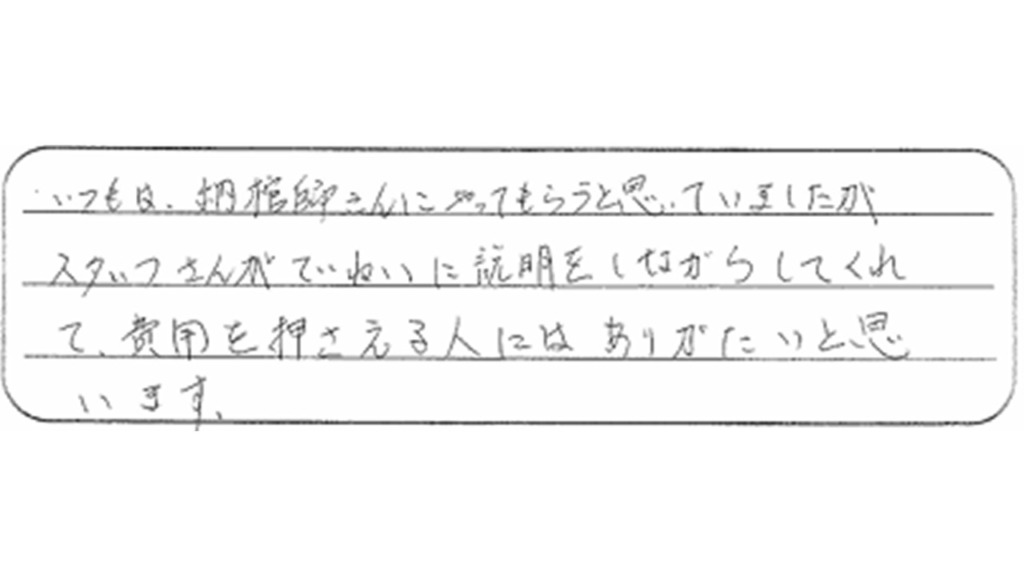 いつもは、納棺師さんにやってもらうと思っていましたが
スタッフさんがていねいに説明をしながらしてくれ
て、費用を押さえる人にはありがたいと思
います。